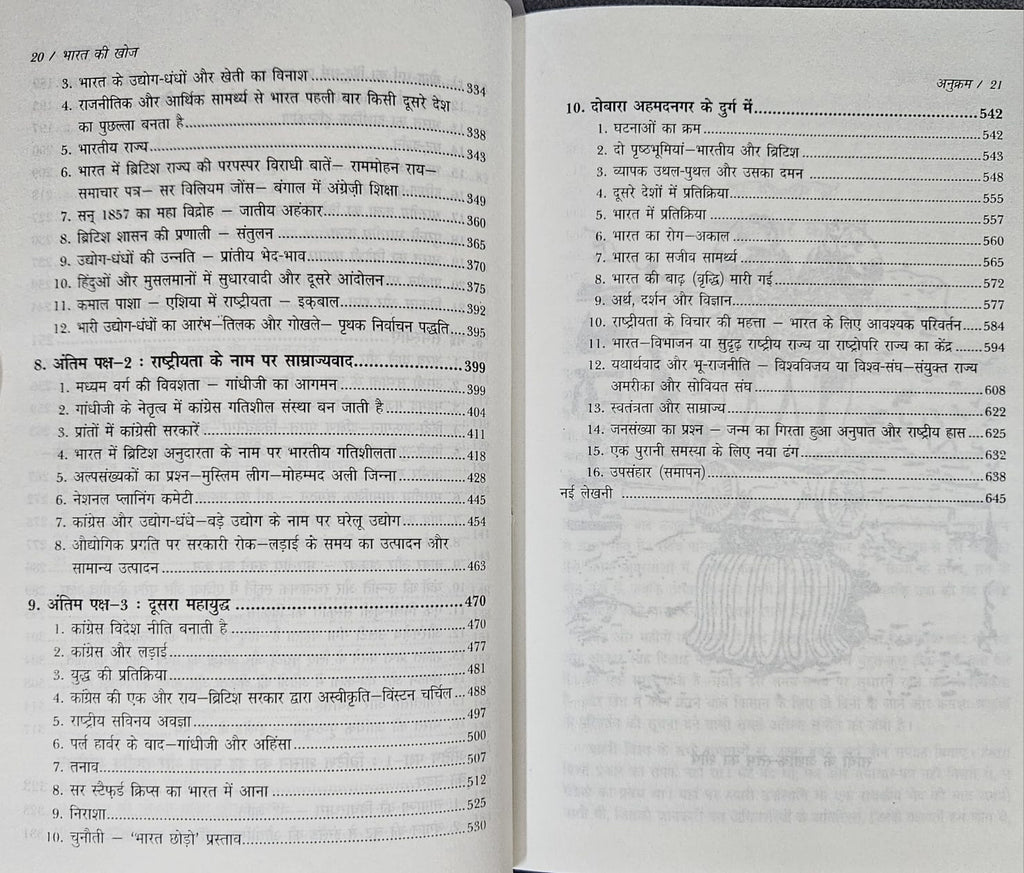 20 / भारत की खोज
3. भारत के उद्योग-धंधों और खेती का विनाश ........ 334
4. राजनीतिक और आर्थिक सामर्थ्य से भारत पहली बार किसी दूसरे देश
का पुछल्ला बनता है ........ 338
5. भारतीय राज्य ........ 343
6. भारत में ब्रिटिश राज्य की परपस्पर विराधी बातें– राममोहन राय–
समाचार पत्र– सर विलियम जोंस– बंगाल में अंग्रेज़ी शिक्षा ........ 349
7. सन् 1857 का महा विद्रोह – जातीय अहंकार ........ 360
8. ब्रिटिश शासन की प्रणाली – संतुलन ........ 365
9. उद्योग-धंधों की उन्नति – प्रांतीय भेद-भाव ........ 370
10. हिंदुओं और मुसलमानों में सुधारवादी और दूसरे आंदोलन ........ 375
11. कमाल पाशा – एशिया में राष्ट्रीयता – इक़बाल ........ 392
12. भारी उद्योग-धंधों का आरंभ–तिलक और गोखले– पृथक निर्वाचन पद्धति .. 395
8. अंतिम पक्ष-2 : राष्ट्रीयता के नाम पर साम्राज्यवाद ........ 399
1. मध्यम वर्ग की विवशता – गांधीजी का आगमन ........ 399
2. गांधीजी के नेतृत्व में कांग्रेस गतिशील संस्था बन जाती है ........ 404
3. प्रांतों में कांग्रेसी सरकारें ........ 411
4. भारत में ब्रिटिश अनुदारता के नाम पर भारतीय गतिशीलता ........ 418
5. अल्पसंख्यकों का प्रश्न–मुस्लिम लीग–मोहम्मद अली जिन्ना ........ 428
6. नेशनल प्लानिंग कमेटी ........ 445
7. कांग्रेस और उद्योग-धंधे–बड़े उद्योग के नाम पर घरेलू उद्योग ........ 454
8. औद्योगिक प्रगति पर सरकारी रोक–लड़ाई के समय का उत्पादन और
सामान्य उत्पादन ........ 463
9. अंतिम पक्ष-3 : दूसरा महायुद्ध ........ 470
1. कांग्रेस विदेश नीति बनाती है ........ 470
2. कांग्रेस और लड़ाई ........ 477
3. युद्ध की प्रतिक्रिया ........ 481
4. कांग्रेस की एक और राय–ब्रिटिश सरकार द्वारा अस्वीकृति–विंस्टन चर्चिल ... 488
5. राष्ट्रीय सविनय अवज्ञा ........ 497
6. पर्ल हार्वर के बाद–गांधीजी और अहिंसा ........ 500
7. तनाव ........ 507
8. सर स्टैफ़र्ड क्रिप्स का भारत में आना ........ 512
9. निराशा ........ 525
10. चुनौती – 'भारत छोड़ो' प्रस्ताव ........ 530
अनुक्रम / 21
10. दोबारा अहमदनगर के दुर्ग में ........ 542
1. घटनाओं का क्रम ........ 542
2. दो पृष्ठभूमियां–भारतीय और ब्रिटिश ........ 543
3. व्यापक उथल-पुथल और उसका दमन ........ 548
4. दूसरे देशों में प्रतिक्रिया ........ 555
5. भारत में प्रतिक्रिया ........ 557
6. भारत का रोग–अकाल ........ 560
7. भारत का सजीव सामर्थ्य ........ 565
8. भारत की बाढ़ (वृद्धि) मारी गई ........ 572
9. अर्थ, दर्शन और विज्ञान ........ 577
10. राष्ट्रीयता के विचार की महत्ता – भारत के लिए आवश्यक परिवर्तन ..... 584
11. भारत–विभाजन या सुदृढ़ राष्ट्रीय राज्य या राष्ट्रोपरि राज्य का केंद्र ...... 594
12. यथार्थवाद और भू-राजनीति – विश्वविजय या विश्व-संघ–संयुक्त राज्य
अमरीका और सोवियत संघ ........ 608
13. स्वतंत्रता और साम्राज्य ........ 622
14. जनसंख्या का प्रश्न – जन्म का गिरता हुआ अनुपात और राष्ट्रीय ह्रास .... 625
15. एक पुरानी समस्या के लिए नया ढंग ........ 632
16. उपसंहार (समापन) ........ 638
नई लेखनी ........ 645